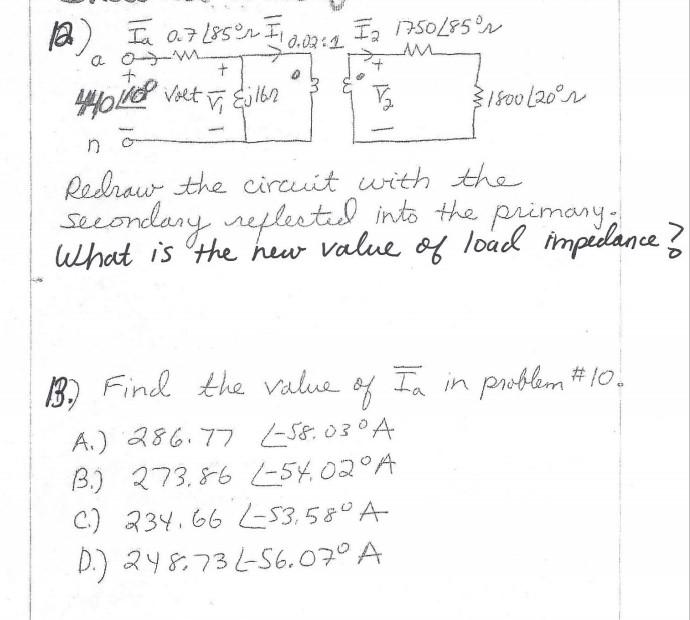 12.) Īa 0.7∠85°Ω Ī₁ 0.02:1 Ī₂ 1750∠85°Ω
a + + +
Volt V̄₁ j16Ω V̄₂ 1800∠20°Ω
n - - -
Redraw the circuit with the
secondary reflected into the primary.
What is the new value of load impedance?
13.) Find the value of Īa in problem #10.
A.) 286.77 ∠-58.03° A
B.) 273.86 ∠-54.02° A
C.) 234.66 ∠-53.58° A
D.) 248.73 ∠-56.07° A